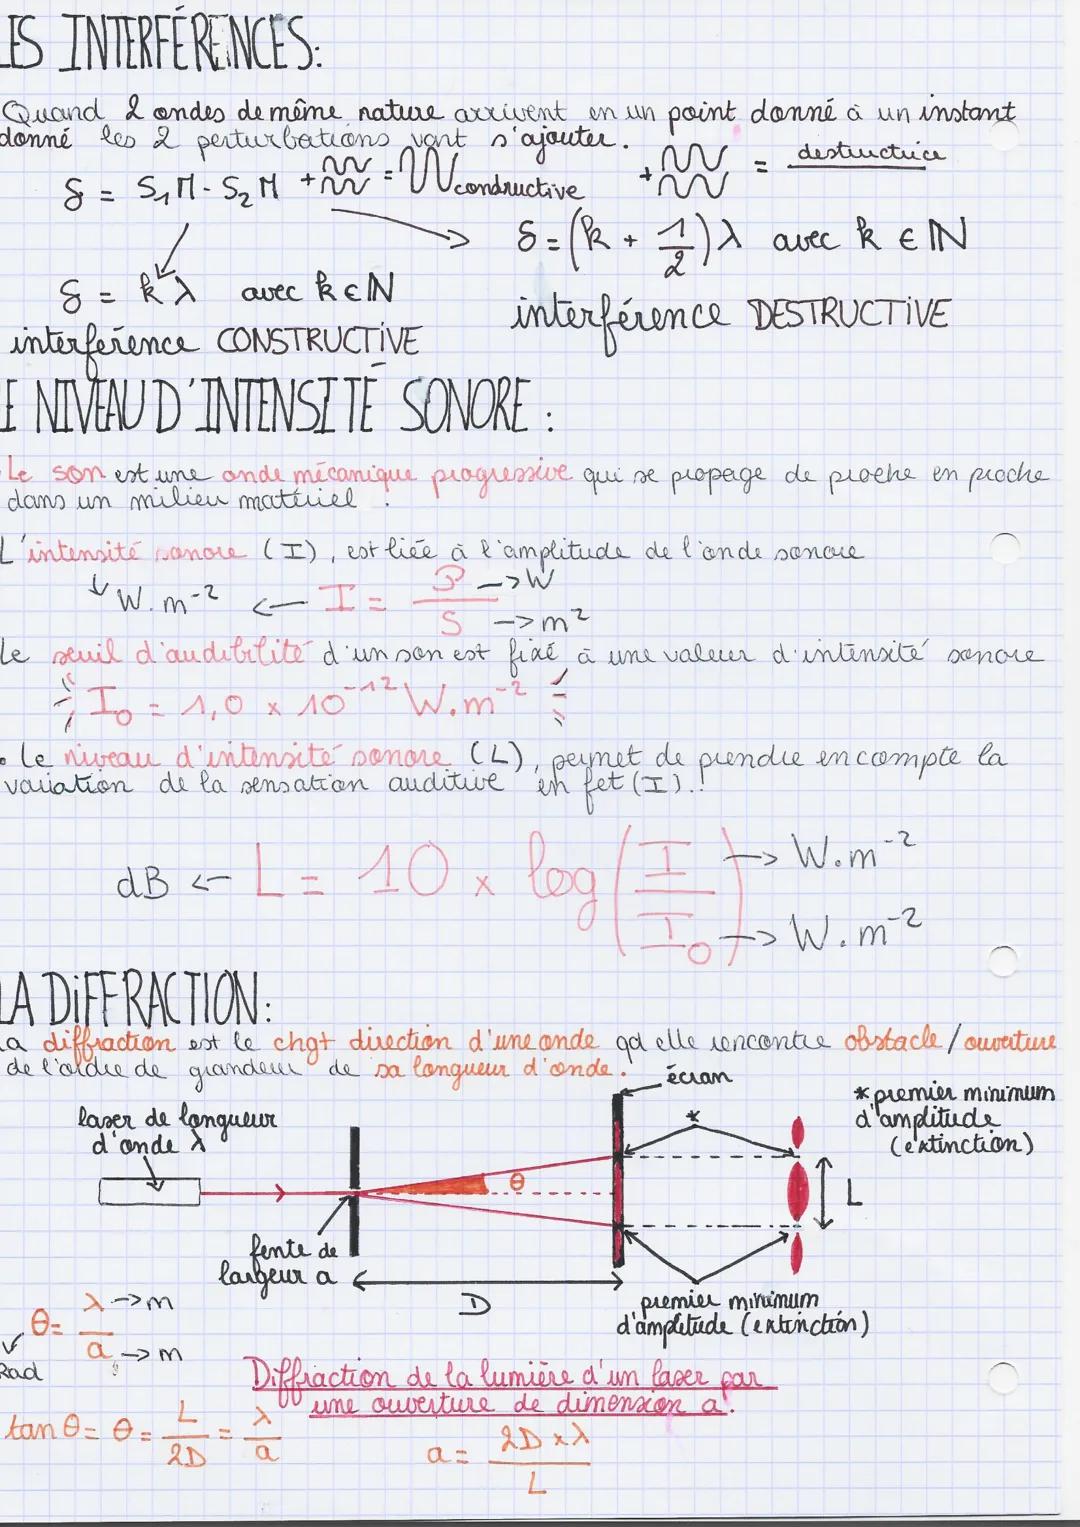 LES INTERFÉRENCES:
Quand 2 ondes de même nature arrivent en un point donné à un instant
donné les 2 perturbations vont s'ajouter.
δ = S₁M - S₂M + = condructive + = destructrice
δ = (k + 1/2)λ avec k ∈ ℕ
δ = kλ avec k ∈ ℕ
interférence DESTRUCTIVE
interférence CONSTRUCTIVE
LE NIVEAU D'INTENSITÉ SONORE :
Le son est une onde mécanique progressive qui se propage de proche en proche
dans un milieu matériel.
L'intensité sonore (I), est liée à l'amplitude de l'onde sonore
W.m⁻² ← I = P/S → W
→ m²
Le seuil d'audibilité d'un son est fixé à une valeur d'intensité sonore
I₀ = 1,0 × 10⁻¹² W.m⁻²
• Le niveau d'intensité sonore (L), permet de prendre en compte la
variation de la sensation auditive en fct (I).!
dB ← L = 10 × log(I/I₀) → W.m⁻²
→ W.m⁻²
LA DIFFRACTION:
La diffraction est le chgt direction d'une onde qd elle rencontre obstacle / ouverture
de l'ordre de grandeur de sa longueur d'onde.
écran
laser de longueur
d'onde λ
*
* premier minimum
d'amplitude
(extinction)
θ
L
fente de
largeur a
D
premier minimum
d'amplitude (extinction)
θ = λ/a → m
→ m
Rad
Diffraction de la lumière d'un laser par
une ouverture de dimension a.
tan θ = θ = L/2D = λ/a
a = 2D × λ/L